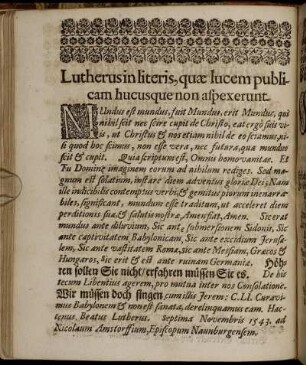 Lutherus in literis, quæ lucem publi
cam hucusque non aspexerunt.
MUndus est mundus, fuit Mundus, erit Mundus, qui
nihil scit nec scire cupit de Christo, eat ergo suis vi-
is, ut Christus & nos etiam nihil de eo sciamus, ni-
si quod hoc scimus, non esse vera, nec futura, quæ mundus
scit & cupit. Quia scriptum est, Omnis homo vanitas. Et
Tu Domine imaginem eorum ad nihilum rediges. Sed ma-
gnum est solatium, instare diem adventus gloriæ Dei, Nam
ille indicibilis contemptus verbi, & gemitus piorum inenarra-
biles, significant, mundum esse traditum, ut acceleret diem
perditionis suæ, & salutis nostræ, Amen fiat, Amen. Sic erat
mundus ante diluvium, Sic ante submersionem Sidonis, Sic
ante captivitatem Babylonicam, Sic ante excidium Jerusa-
lem, Sic ante vastitatem Romæ, sic ante Messiam, Græcos &
Hungaros, sic erit & est ante ruinam Germaniæ.
ren sollen Sie nicht / erfahren müssen Sie es. De his
tecum Libentius agerem, pro mutua inter nos Consolatione.
Wir müssen doch singen cum illis Jerem: C. LI. Curavi-
mus Babylonem & non est sanata, derelinquamus eam. Hac-
tenus, Beatus Lutherus. Septima Novembris 1543. ad
Nicolaum Amstorffium, Episcopum Naunburgensem.